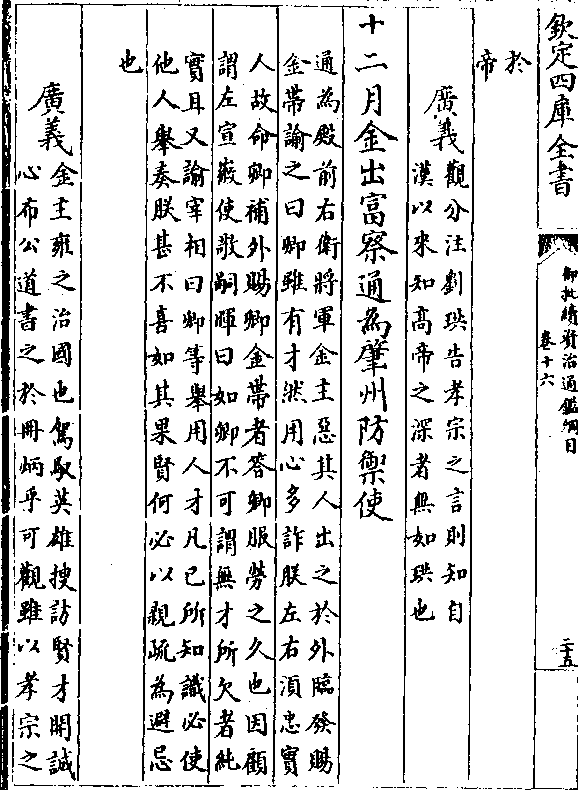 欽定四庫全書
御批續資治通鑑綱目
卷十六
二十五
於
帝
廣義
觀分注劉珙告孝宗之言則知自
漢以來知高帝之深者無如珙也
十二月金出富察通為肇州防禦使
通為殿前右衛將軍金主惡其人出之於外臨發賜
金帶諭之曰卿雖有才然用心多詐朕左右須忠實
人故命卿補外賜卿金帶者答卿服勞之久也因顧
謂左宣徽使敬嗣暉曰如卿不可謂無才所欠者純
實耳又諭宰相曰卿等舉用人才凡已所知識必使
他人舉奏朕甚不喜如其果賢何必以親疏為避忌
也
廣義
金主雍之治國也駕馭英雄搜訪賢才開誠
心布公道書之於冊炳乎可觀雖以孝宗之